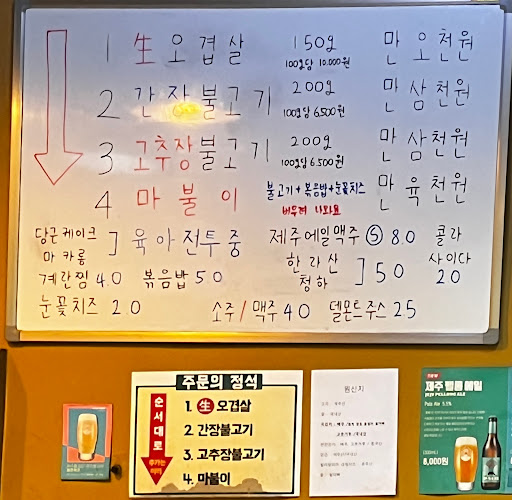 1 生오겹살 150g 만 오천원
100g당 10,000원
2 간장불고기 200g 만 삼천원
100g당 6,500원
3 고추장불고기 200g 만 삼천원
100g당 6,500원
4 마불이 불고기+볶음밥+눈꽃치즈 만 육천원
비우져 나와요
당근케이크
마카롱 ] 육아전투중
제주에일맥주 Ⓢ 8.0
한라산
청하 ] 5.0
콜라
사이다
2.0
계란찜 4.0 볶음밥 5.0
눈꽃치즈 2.0 소주/맥주 4.0 델몬트주스 2.5
주문의 정석
순서대로
1. 生 오겹살
2. 간장불고기
3. 고추장불고기
4. 마불이
원산지
제주 펠롱 에일
JEJU PELLONG ALE
Pale Ale 5.5%
8,000원